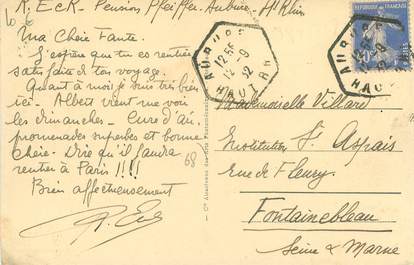 R. Eck. Pension Pfeiffer Aubure. Ht Rhin
Ma Chère Tante.
J'espère que tu es rentrée
satisfaite de ton voyage.
Quant à moi je suis très bien
ici. Albert vient me voir
les dimanches. Cure d'air
promenades superbes et bonne
Chère. Dire qu'il faudra
rentrer à Paris !!!!
Bien affectueusement
R. Eck
68
AUBURE
12 15
12 - 9
32
HAUT RH
RÉPUBLIQUE FRANÇAISE
Mademoiselle Villard
Institution St Aspais
Rue de Fleury.
Fontainebleau
Seine & Marne